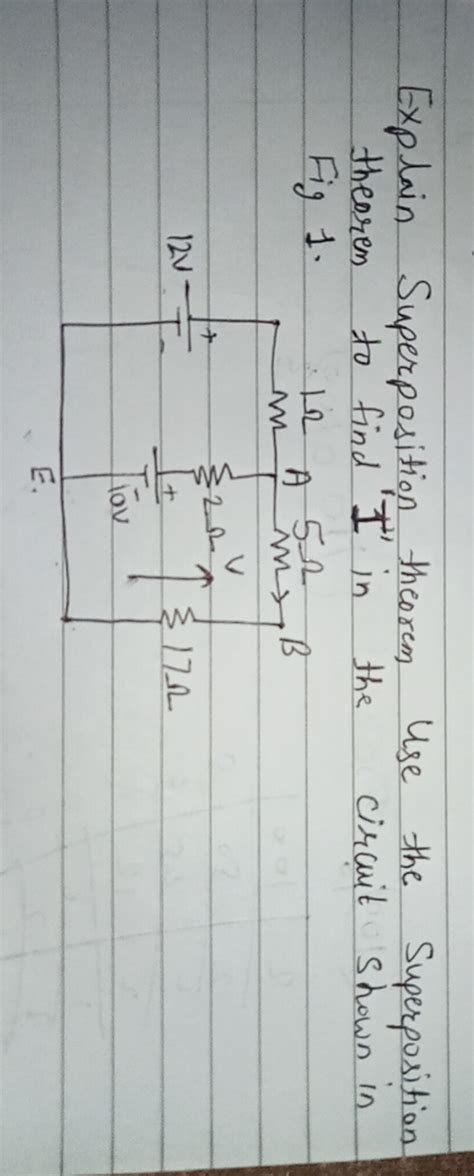 Explain Superposition theorem Use the Superposition
theorem to find "I" in the circuit shown in
Fig 1.
1Ω A 5Ω B
12V + -
2Ω V 17Ω
+ -
10V
E.